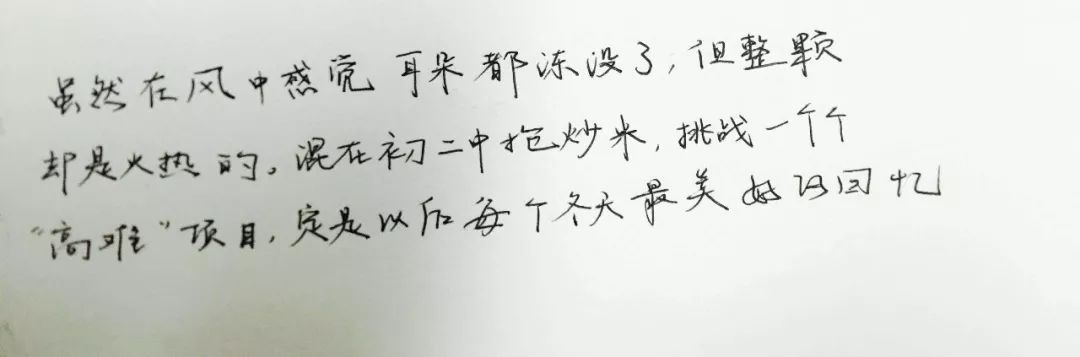 虽然在风中感觉耳朵都冻没了,但整颗
却是火热的。混在初二中抢炒米,挑战一个个
“高难”项目,定是以后每个冬天最美好的回忆